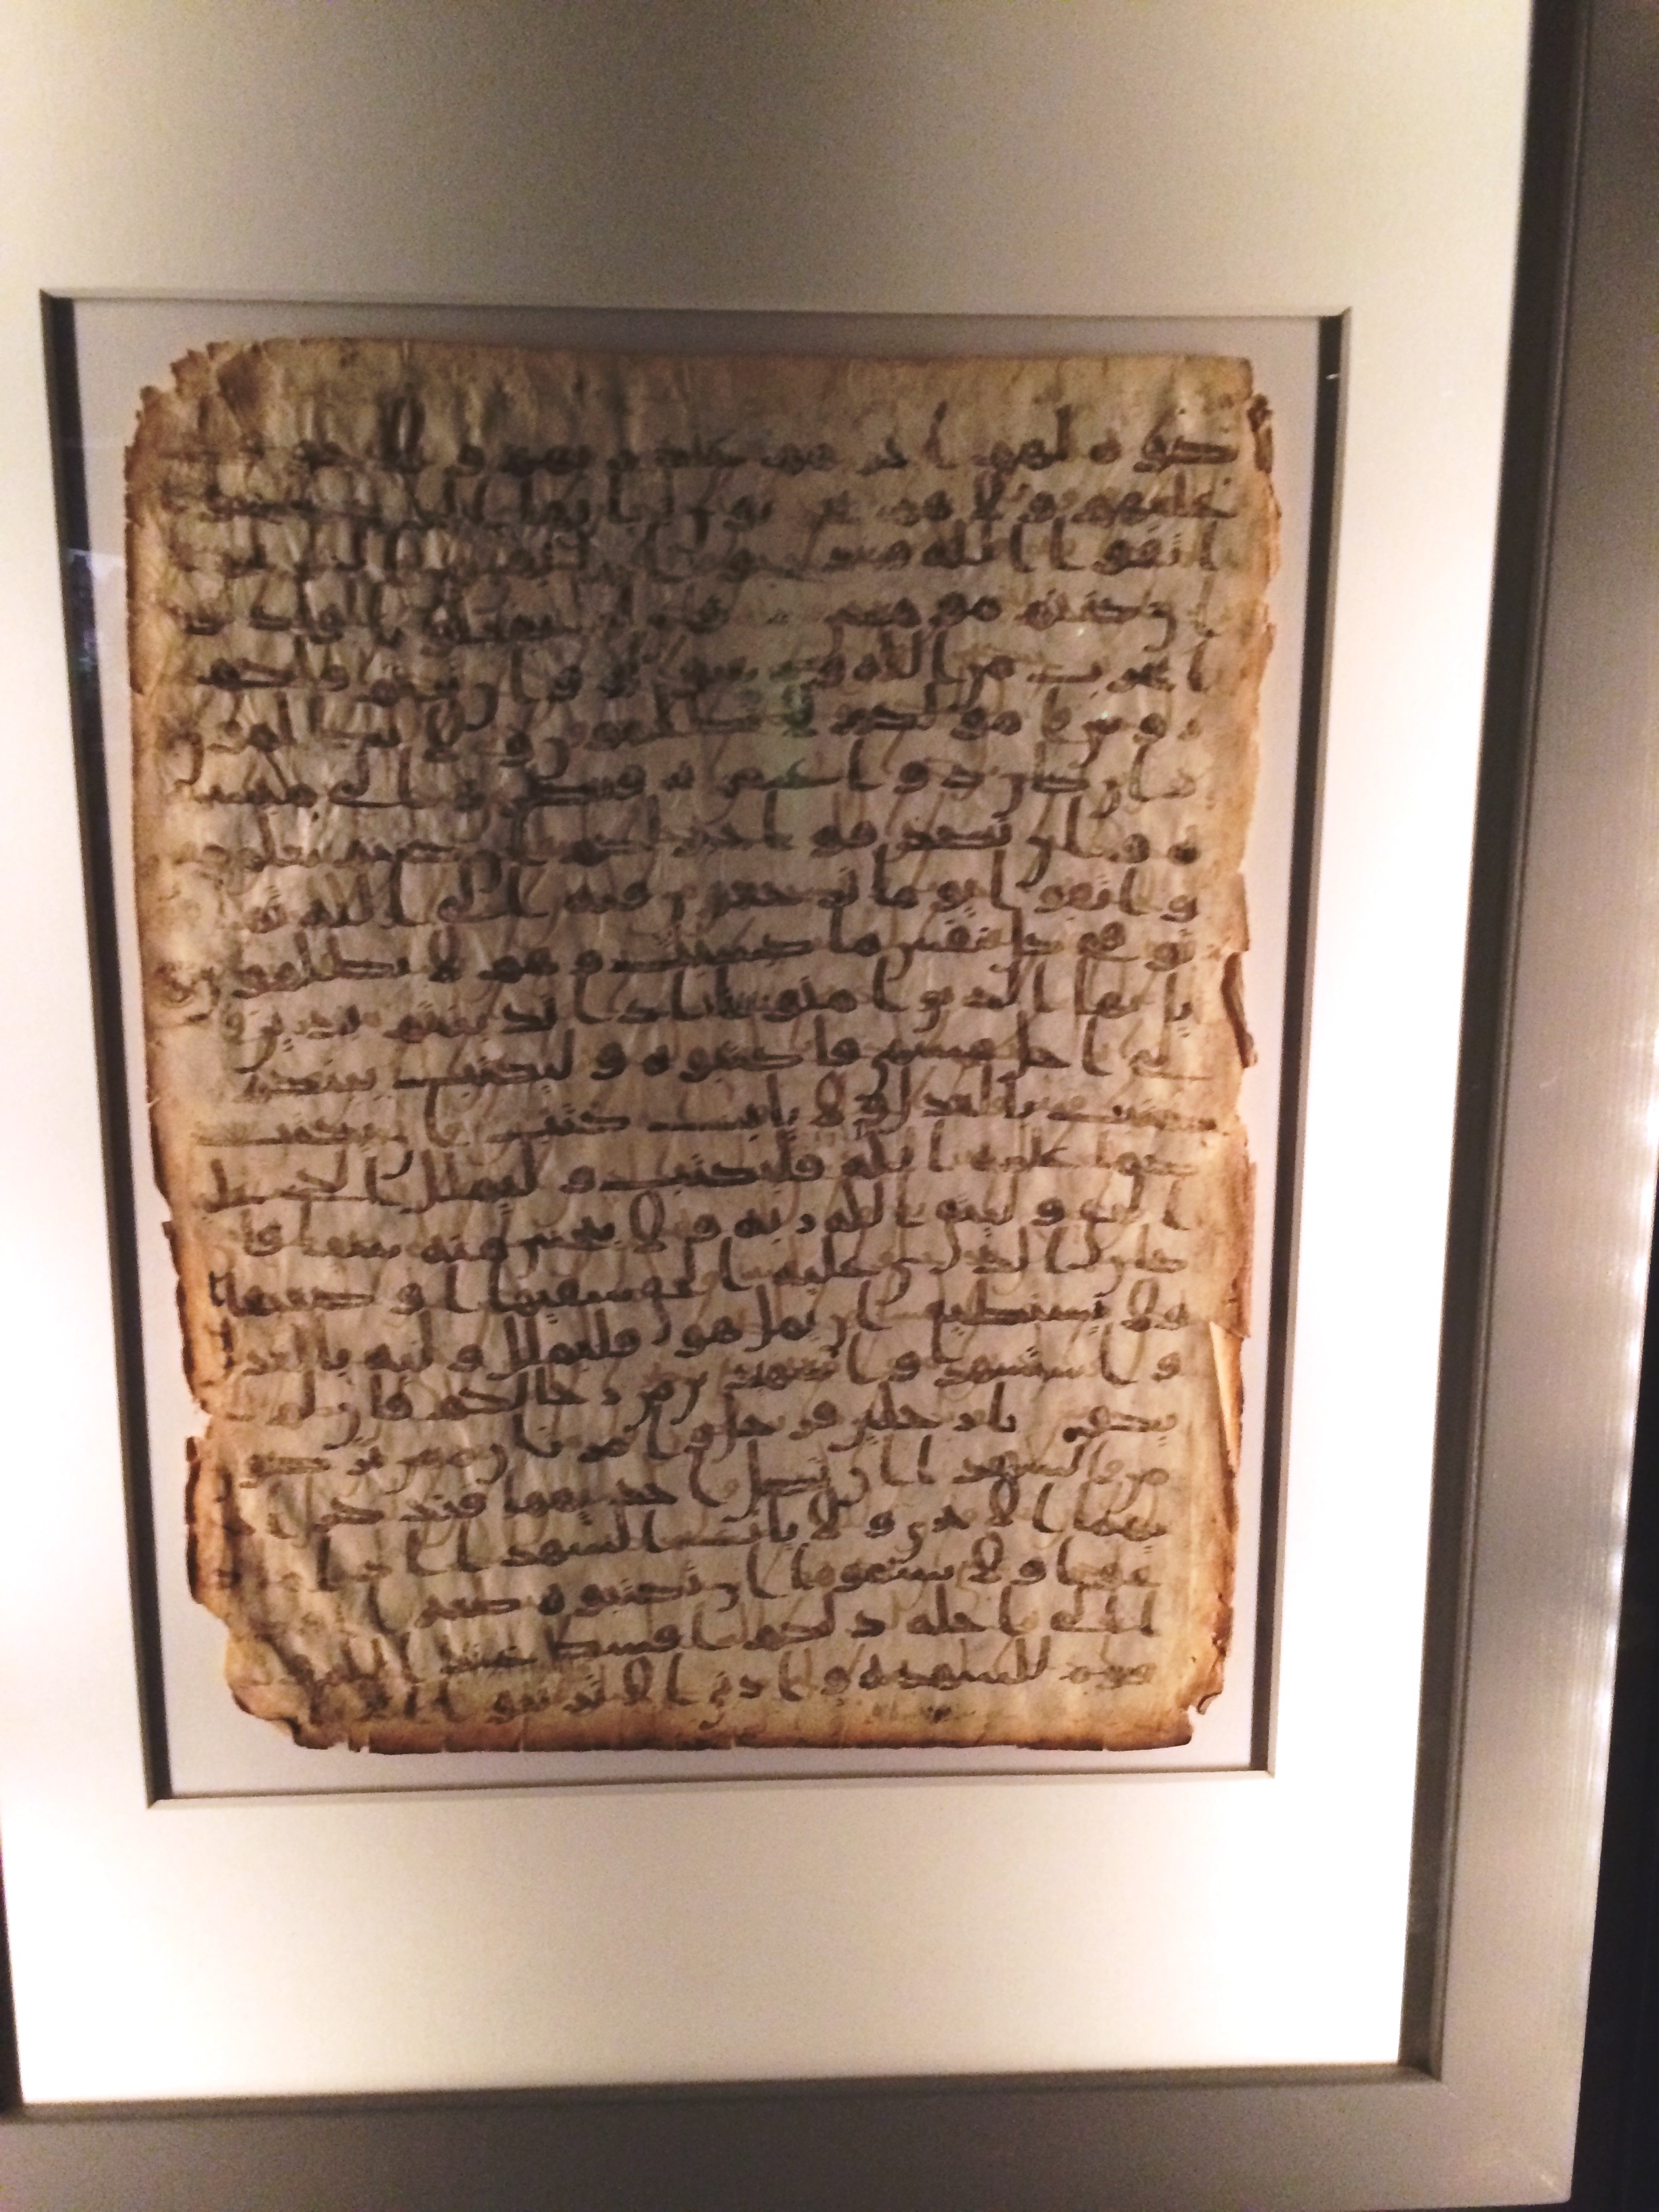 كوة لهم اجرهم عند ربهم ولا خوف
عليهم ولا هم يحزنون يايها الذين امنوا
اتقوا الله وذروا ما بقي من الربوا
ان كنتم مومنين فان لم تفعلوا فاذنوا
بحرب من الله ورسوله وان تبتم فلكم
روس امولكم لا تظلمون ولا تظلمون
وان كان ذو عسرة فنظرة الى ميسر
ة وان تصدقوا خير لكم ان كنتم تعلمون
واتقوا يوما ترجعون فيه الى الله ثم
توفى كل نفس ما كسبت وهم لا يظلمون
يايها الذين امنوا اذا تداينتم بدين
الى اجل مسمى فاكتبوه وليكتب بينكم
كتب بالعدل ولا ياب كتب ان يكتب
كما علمه الله فليكتب وليملل الذي عليه
الحق وليتق الله ربه ولا يبخس منه شيا فا
ن كان الذي عليه الحق سفيها او ضعيفا
او لا يستطيع ان يمل هو فليملل وليه بالعد
ل واستشهدوا شهيدين من رجالكم فان لم
يكونا رجلين فرجل وامراتان ممن ترضو
ن من الشهدا ان تضل احديهما فتذكر ا
حديهما الاخرى ولا ياب الشهدا اذا ما د
عوا ولا تسموا ان تكتبوه صغيرا
الى اجله ذلكم اقسط عند الله وا
قوم للشهدة وادنى الا ترتبوا الا